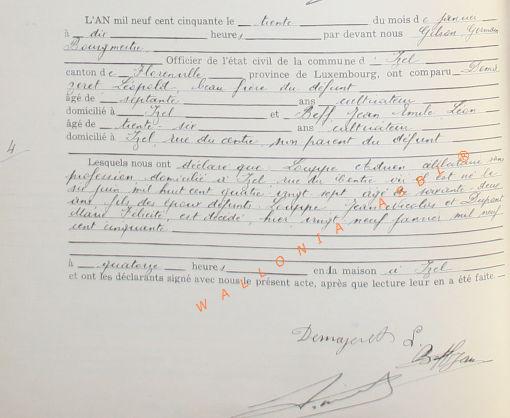 L'AN mil neuf cent cinquante le trente du mois de janvier
à dix heures par devant nous Gilson Germain
Bourgmestre
Officier de l'état civil de la commune d' Izel
canton de Florenville province de Luxembourg, ont comparu Dema
zeret Léopold, beau frère du défunt
âgé de septante ans cultivateur
domicilié à Izel et Beff Jean Emile Léon
âgé de trente-six ans cultivateur
domicilié à Izel, rue du centre, non parent du défunt
4
Lesquels nous ont déclaré que Louppe célibataire sans
profession, domicilié à Izel, rue du Centre, où il est né le
six juin mil huit cent quatre vingt sept âgé de soixante deux
ans, fils des époux défunts Louppe Jean Nicolas et Dupont
Marie Félicité, est décédé, hier vingt neuf janvier mil neuf
cent cinquante
à quatorze heures en la maison à Izel
et ont les déclarants signé avec nous le présent acte, après que lecture leur en a été faite
WALLONIA ASBL ®
Demazeret L.
Beff Jean